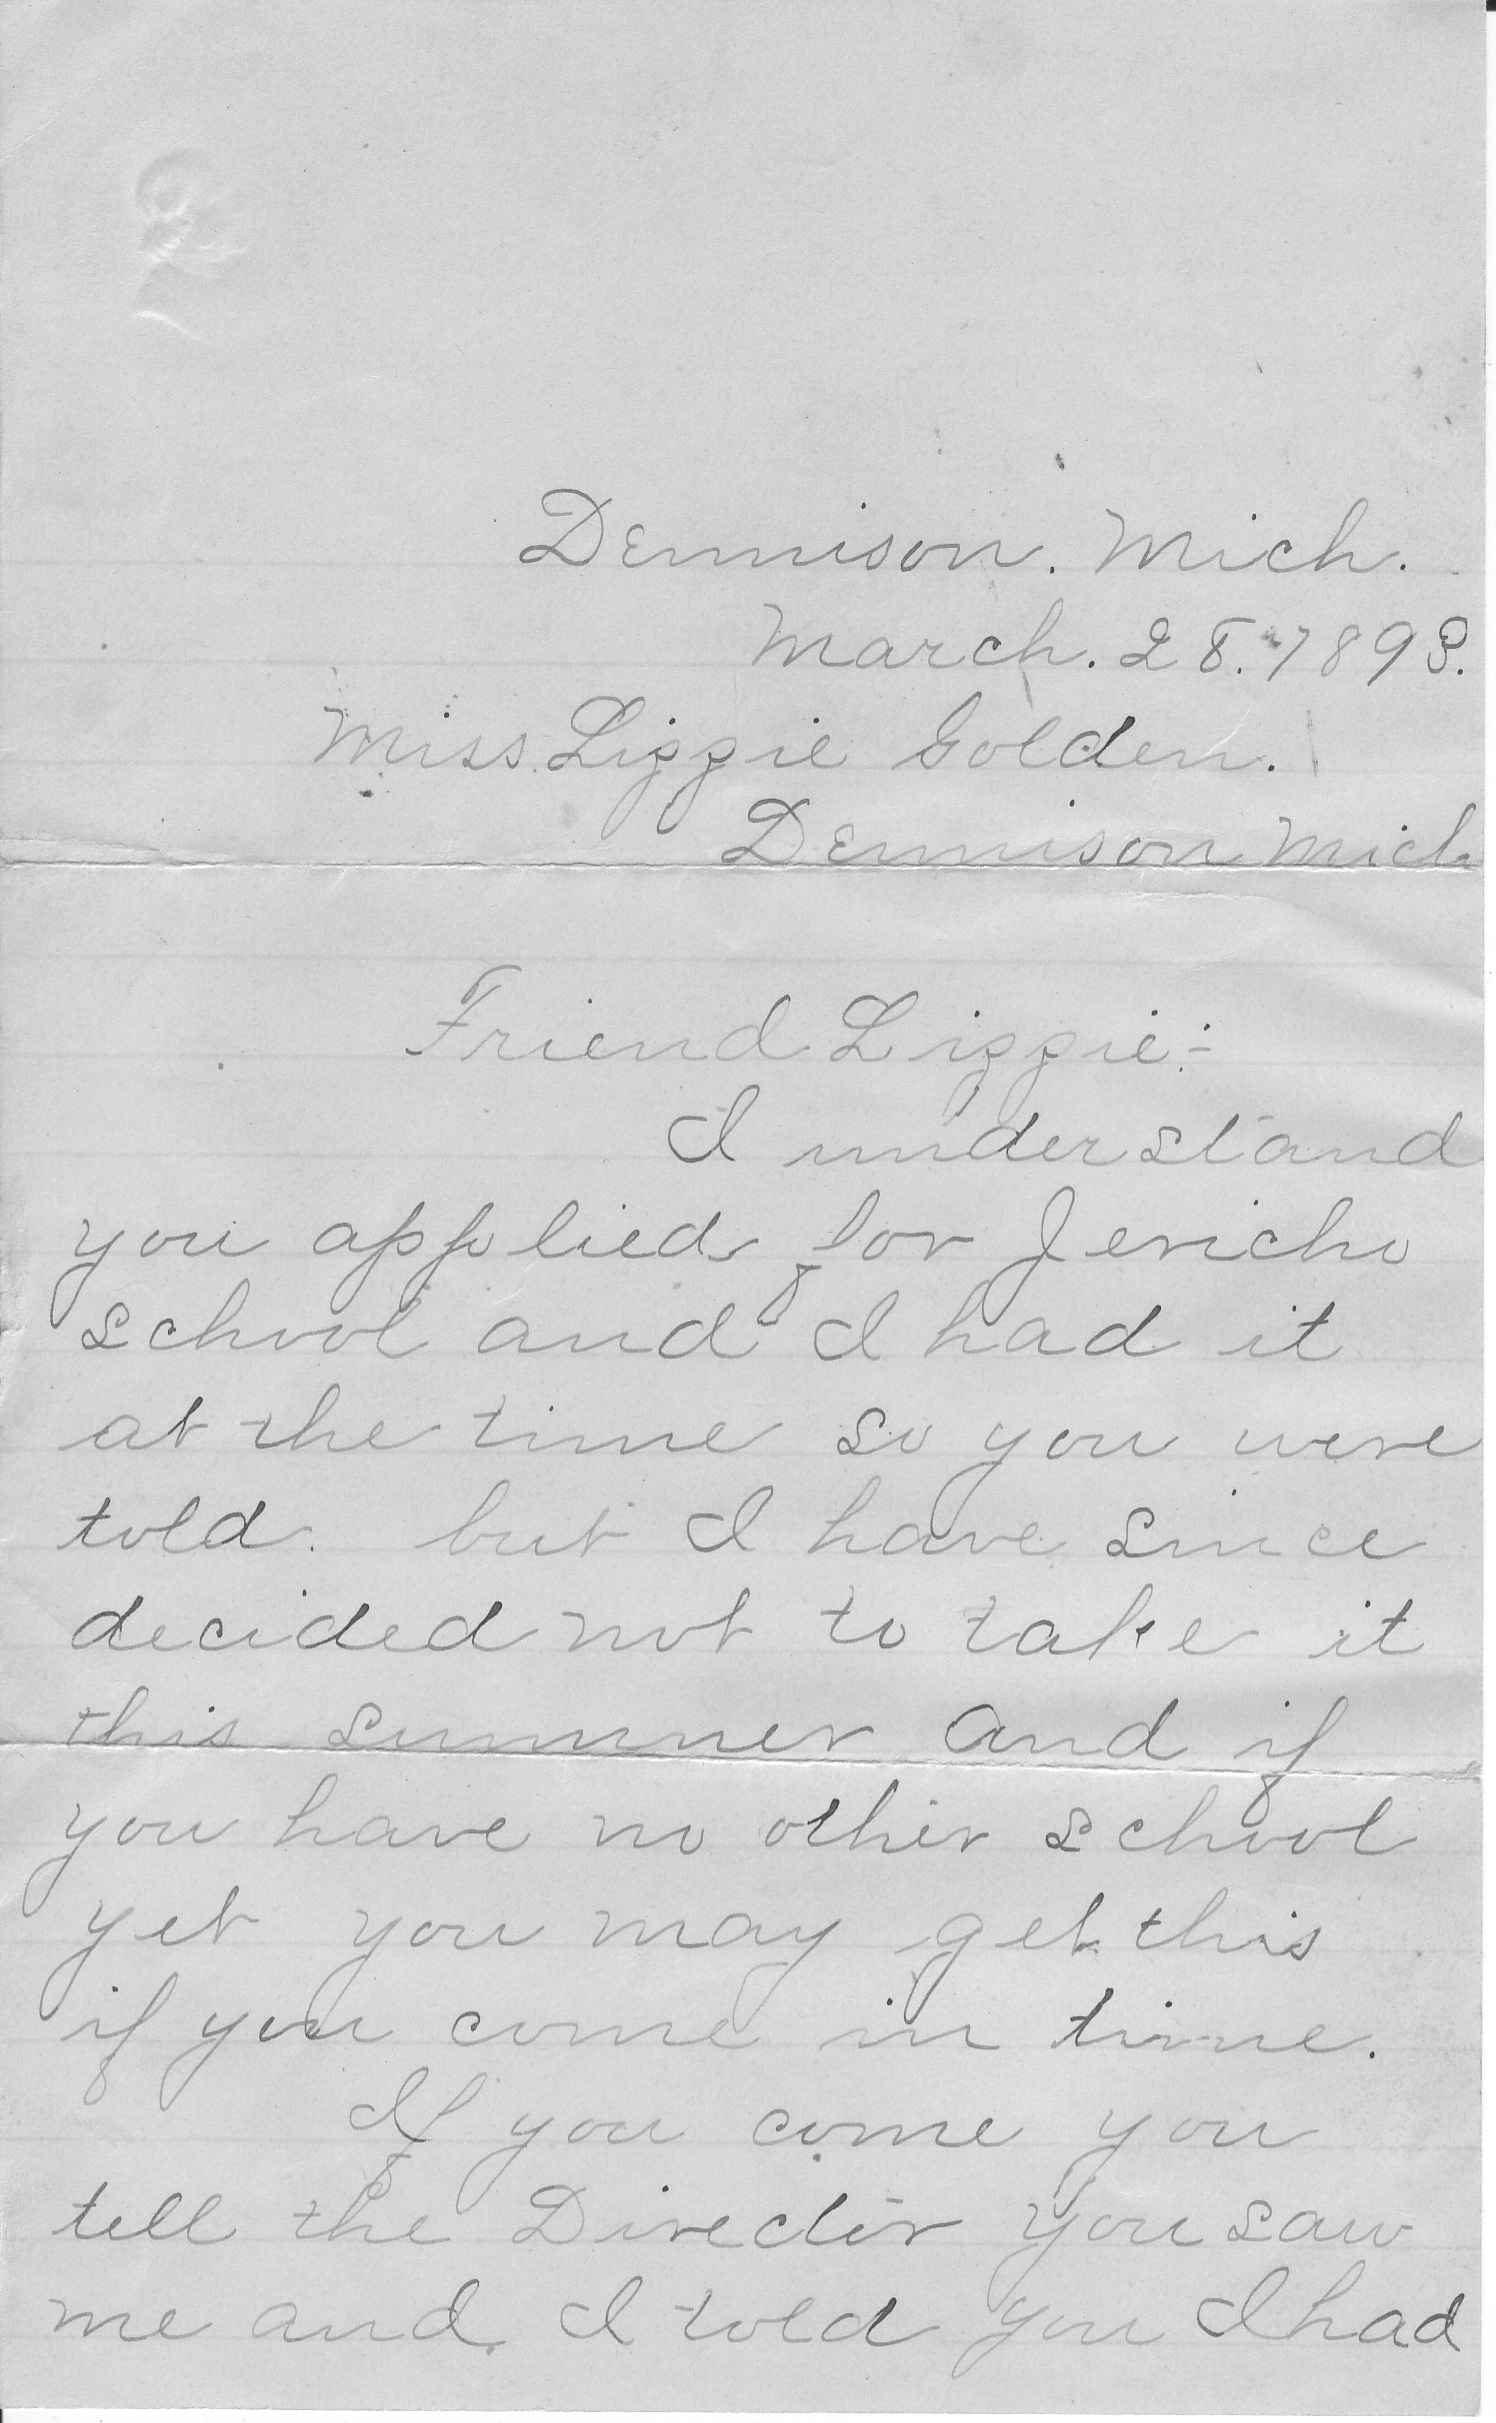 Dennison. Mich.
March. 28. 1893.
Miss. Lizzie Golden.
Dennison Mich
Friend Lizzie:-
I understand
you applied for Jericho
school and I had it
at the time so you were
told. but I have since
decided not to take it
this summer and if
you have no other school
yet you may get this
if you come in time.
If you come you
tell the Director you saw
me and I told you I had